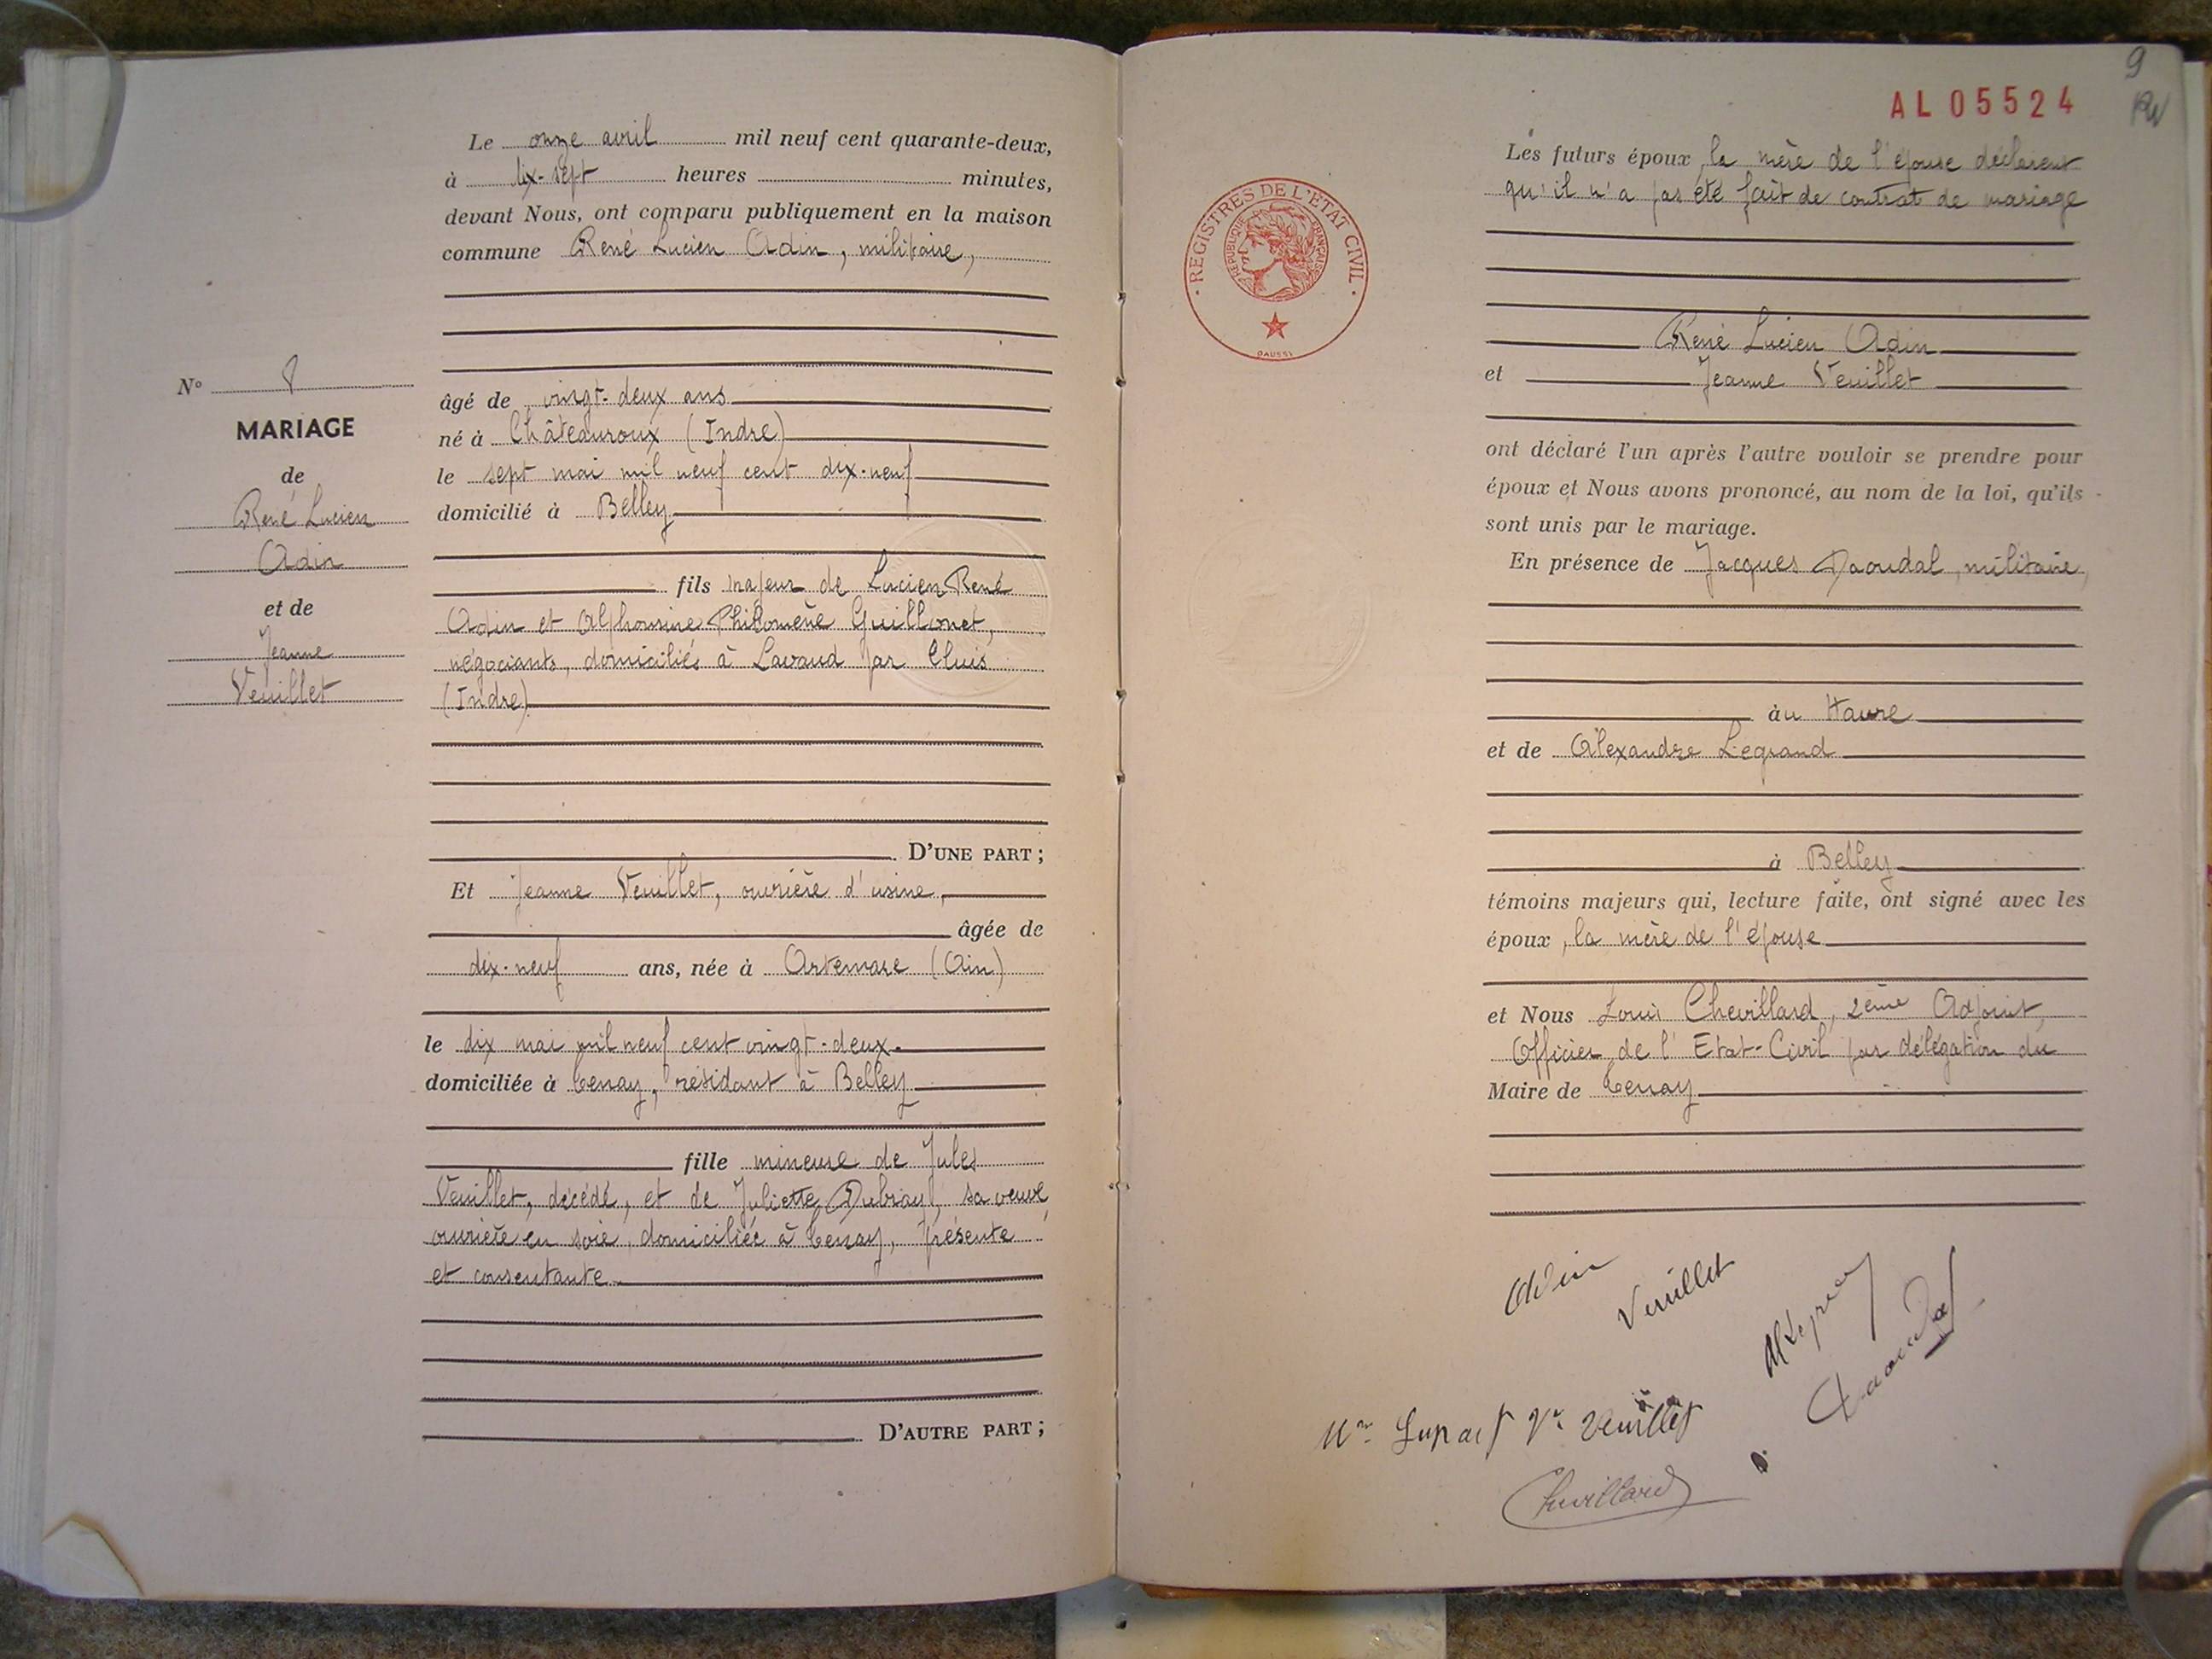 Le onze avril mil neuf cent quarante-deux,
à dix-sept heures minutes,
devant Nous, ont comparu publiquement en la maison
commune René Lucien Adin, militaire,
âgé de vingt-deux ans
né à Châteauroux (Indre)
le sept mai mil neuf cent dix-neuf
domicilié à Belley
fils majeur de Lucien René
Adin et Alphonsine Philomène Guillonet,
négociants, domiciliés à Lavaud par Cluis
(Indre)
D'UNE PART ;
Et Jeanne Veuillet, ouvrière d'usine,
âgée de
dix-neuf ans, née à Artemare (Ain)
le dix mai mil neuf cent vingt-deux
domiciliée à Tenay, résidant à Belley
fille mineure de Jules
Veuillet, décédé, et de Juliette, sa veuve,
ouvrière en soie, domiciliée à Tenay, présente
et consentante
D'AUTRE PART ;
N° 8
MARIAGE
de
René Lucien
Adin
et de
Jeanne
Veuillet
9
AL 05524
REGISTRES DE L'ETAT CIVIL
REPUBLIQUE FRANÇAISE
Les futurs époux, la mère de l'épouse déclarent
qu'il n'a pas été fait de contrat de mariage
René Lucien Adin
et Jeanne Veuillet
ont déclaré l'un après l'autre vouloir se prendre pour
époux et Nous avons prononcé, au nom de la loi, qu'ils
sont unis par le mariage.
En présence de Jacques Daoudal, militaire,
au Havre
et de Alexandre Legrand
à Belley
témoins majeurs qui, lecture faite, ont signé avec les
époux, la mère de l'épouse
et Nous Louis Chevillard, 2ème Adjoint,
Officier de l'Etat-Civil par délégation du
Maire de Tenay
Adin
Veuillet
Daoudal
Vve Veuillet
Chevillard